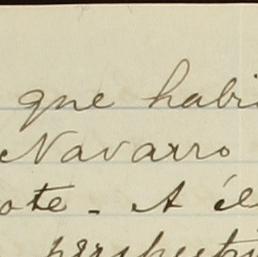 que habi
Navarro
ote. - A él
perspecti